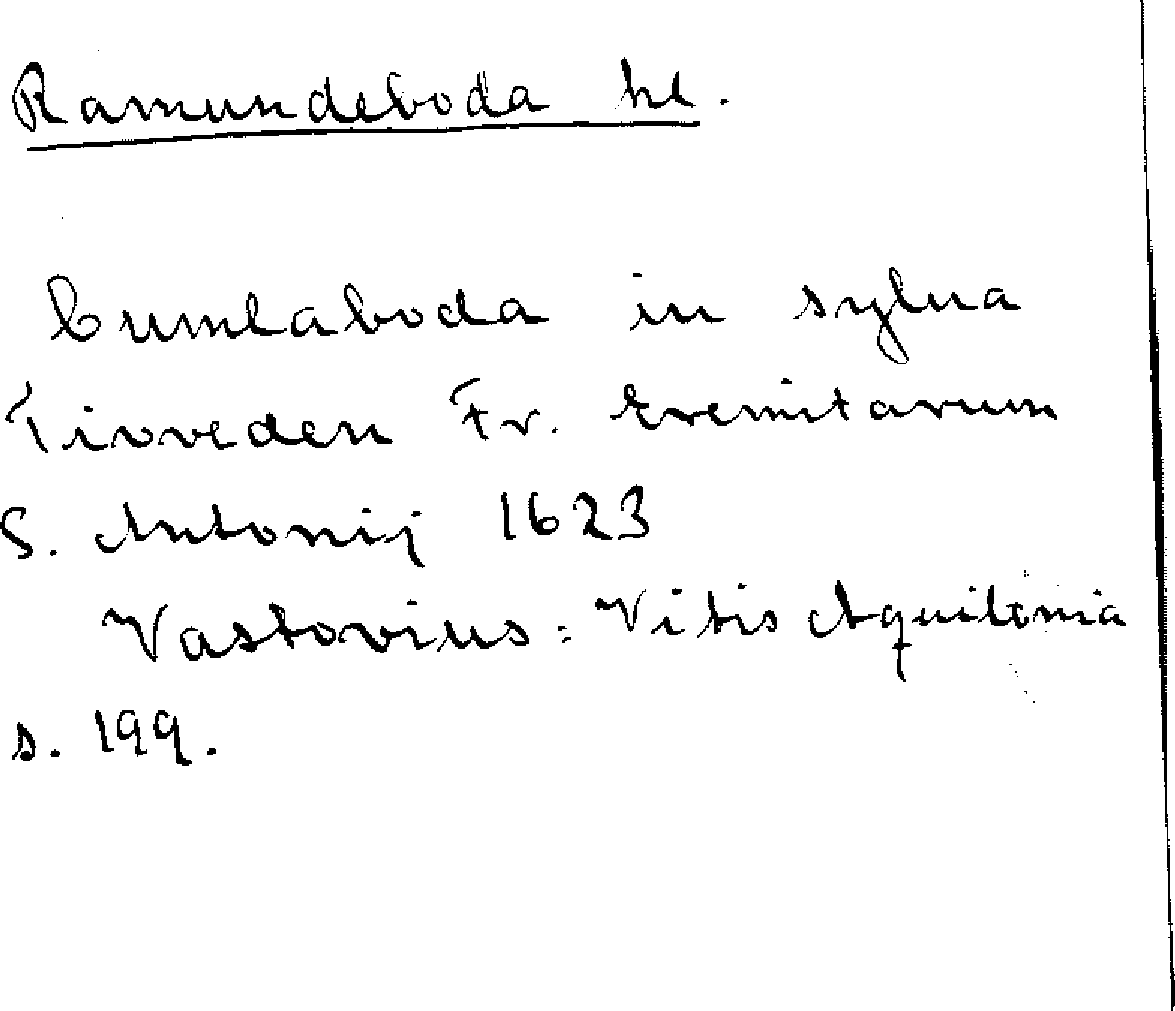 Ramundeboda kl.
Cumlaboda in sylua
Tivveden Fr. Eremitarum
S. Antonij 1623
Vastovius: Vitis Aquilonia
s. 199.